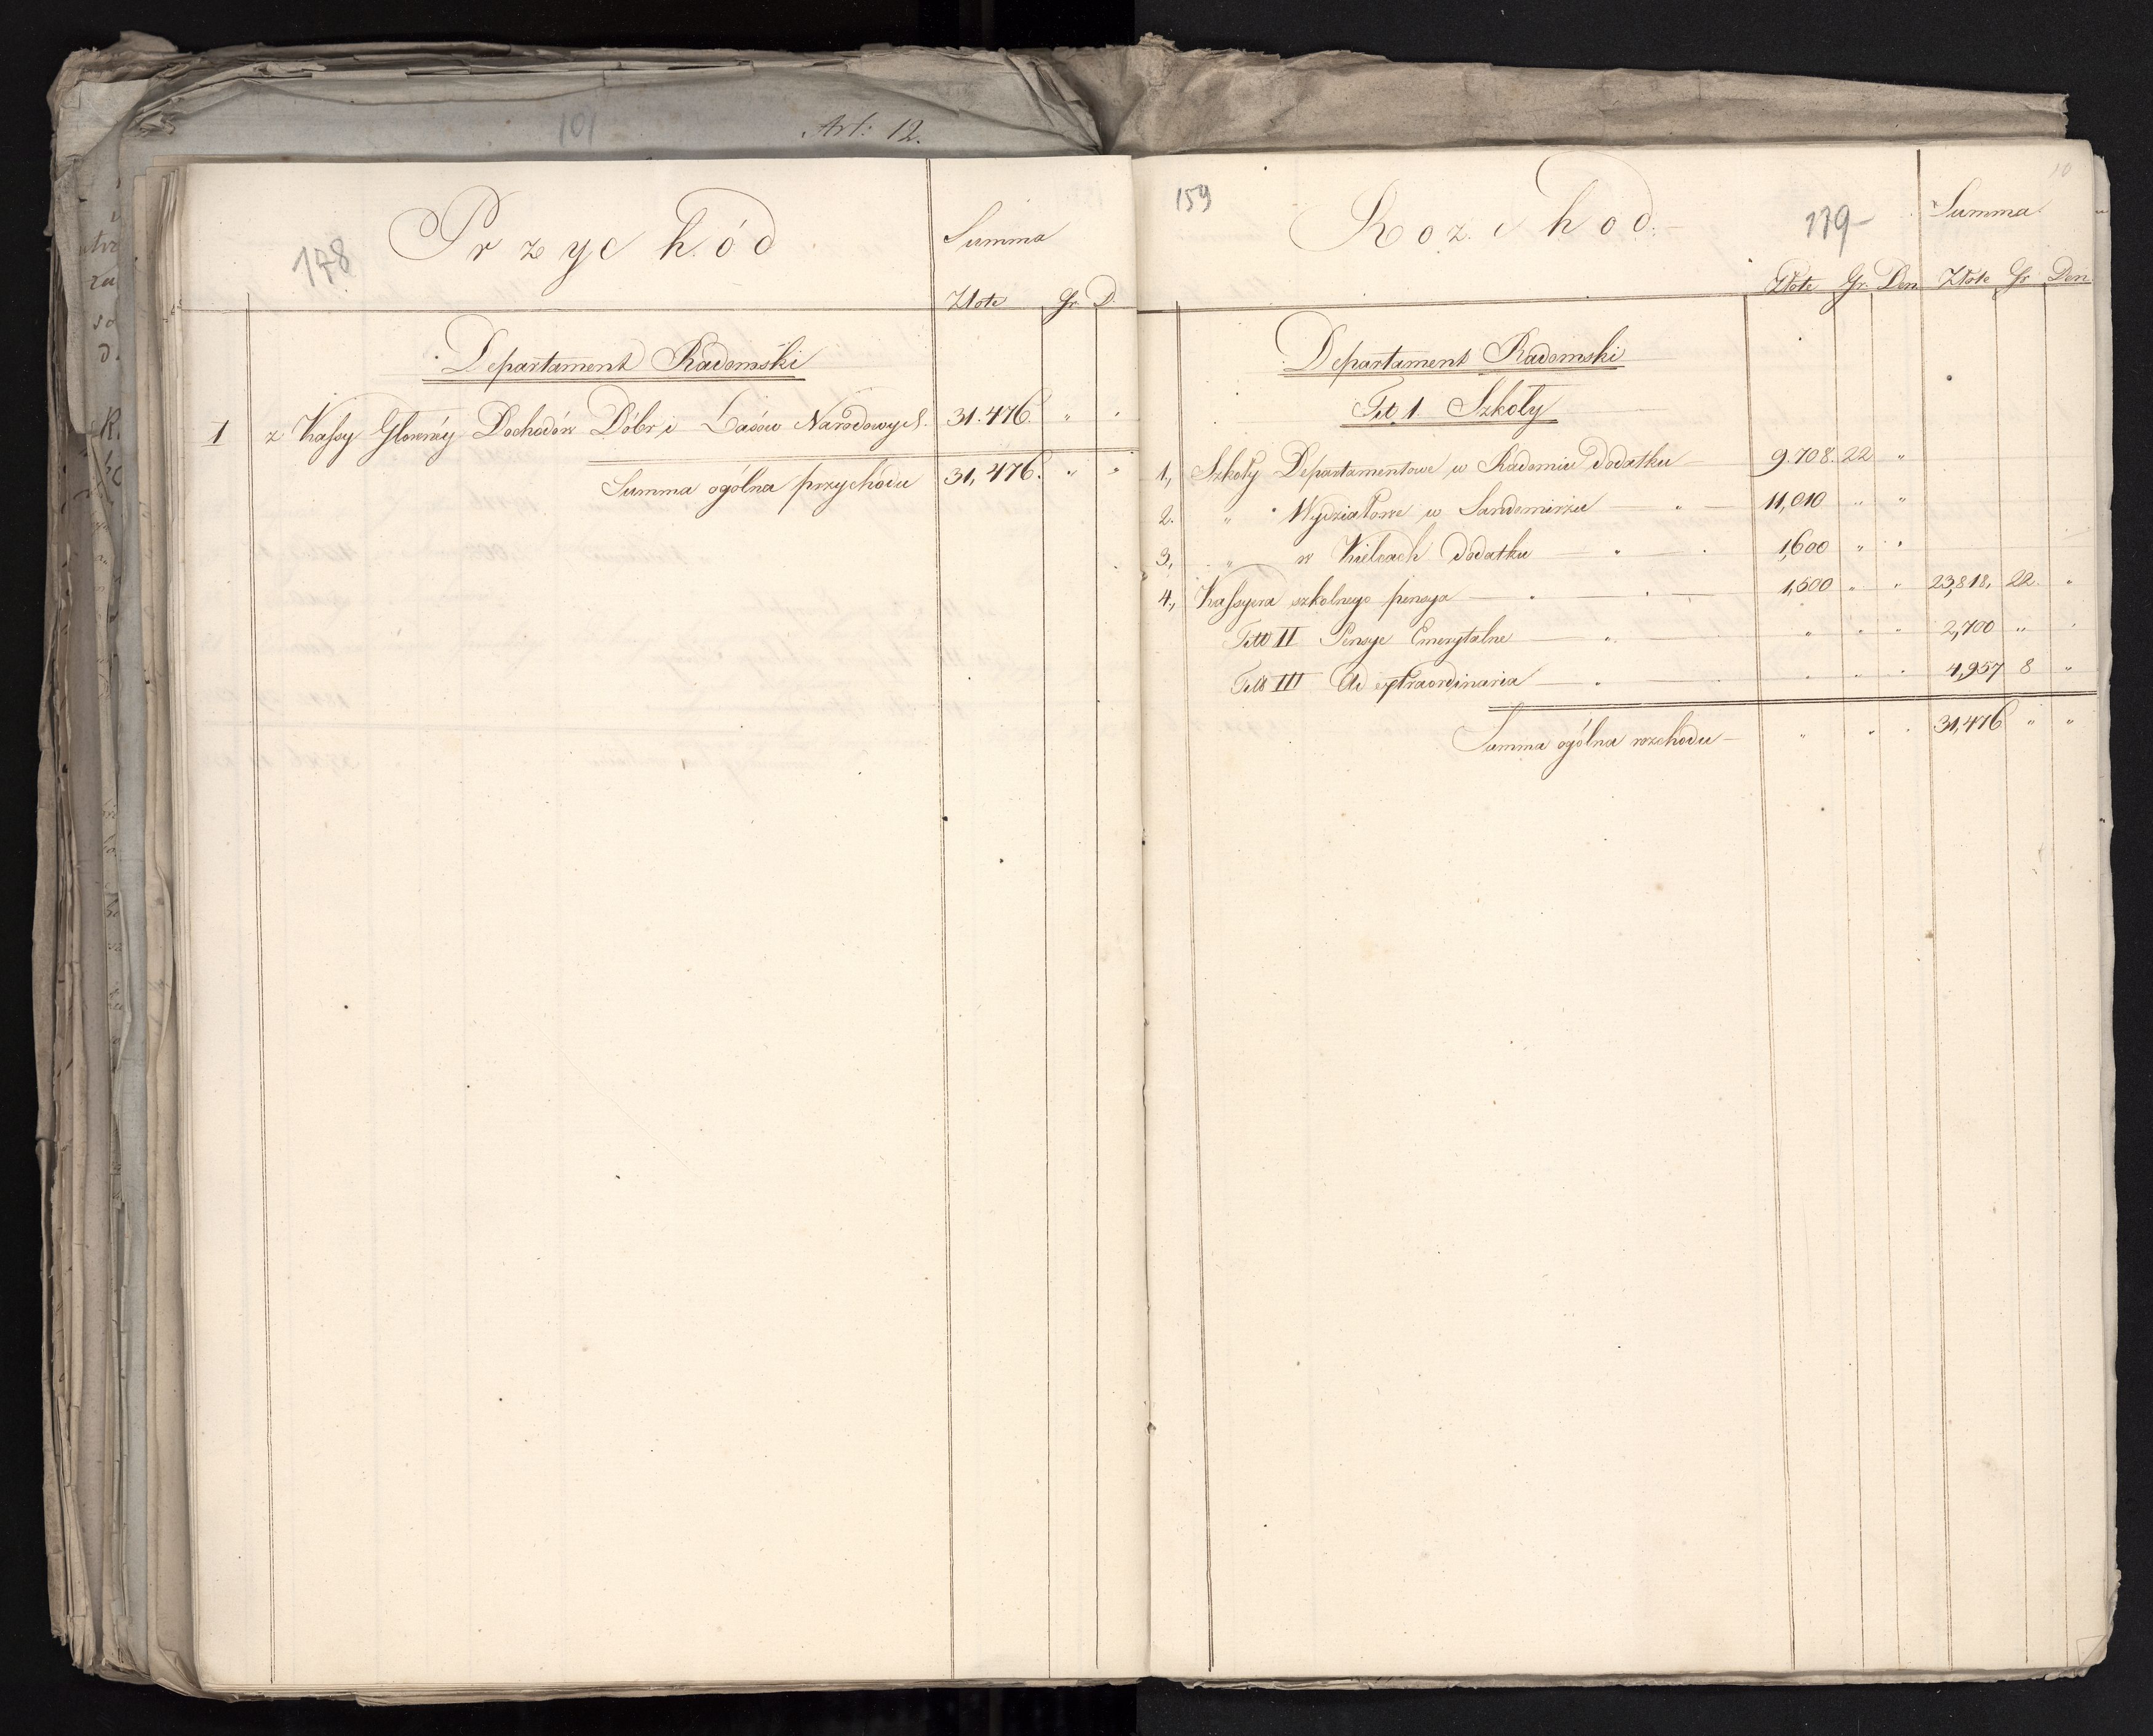 101 Art: 12.
178 Przychód Summa
Złote Gr. D.
Departament Radomski
1 z Kassy Głownéy Dochodów Dóbr i Lasów Narodowych. 31.476. " "
Summa ogólna przychodu 31,476. " "
159 Rozchod. 179 Summa 10
Złote Gr. Den Złote Gr Den
Departament Radomski
Tit 1. Szkoły
1, Szkoły Departamentowe w Radomiu dodatku 9.708. 22 "
2. " Wydziałowe w Sandomirzu 11,010 " "
3, " w Kielcach dodatku 1,600 " "
4, Kassyera szkolnego pensya 1,500 " " 23,818, 22. "
Titt II Pensye Emerytalne " " " 2,700 " "
Titt III Ad extraordinaria " " " 4,957 8 "
Summa ogólna rozchodu " " " 31,476 " "